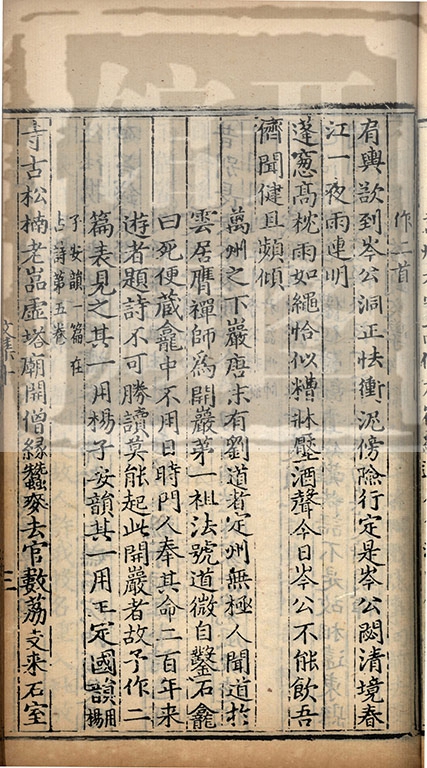 肩輿欲到岑公洞正怯衝泥傍險行定是岑公閟清境春
江一夜雨連明
蓬窻高枕雨如繩恰似糟牀壓酒聲今日岑公不能飲吾
儕聞健且頻傾
萬州之下巖唐末有劉道者定州無極人聞道於
雲居膺禪師為開巖第一祖法號道微自鑿石龕
曰死便蔵龕中不用日時門人奉其命二百年来
遊者題詩不可勝讀莫能起此開巖者故予作二
篇表見之其一用楊子安韻其一用王定國韻用楊
子安韻一篇在
占詩第五卷
寺古松楠老嵓虚塔廟開僧縁蠶麥去官數荔支来石室
作二首
三